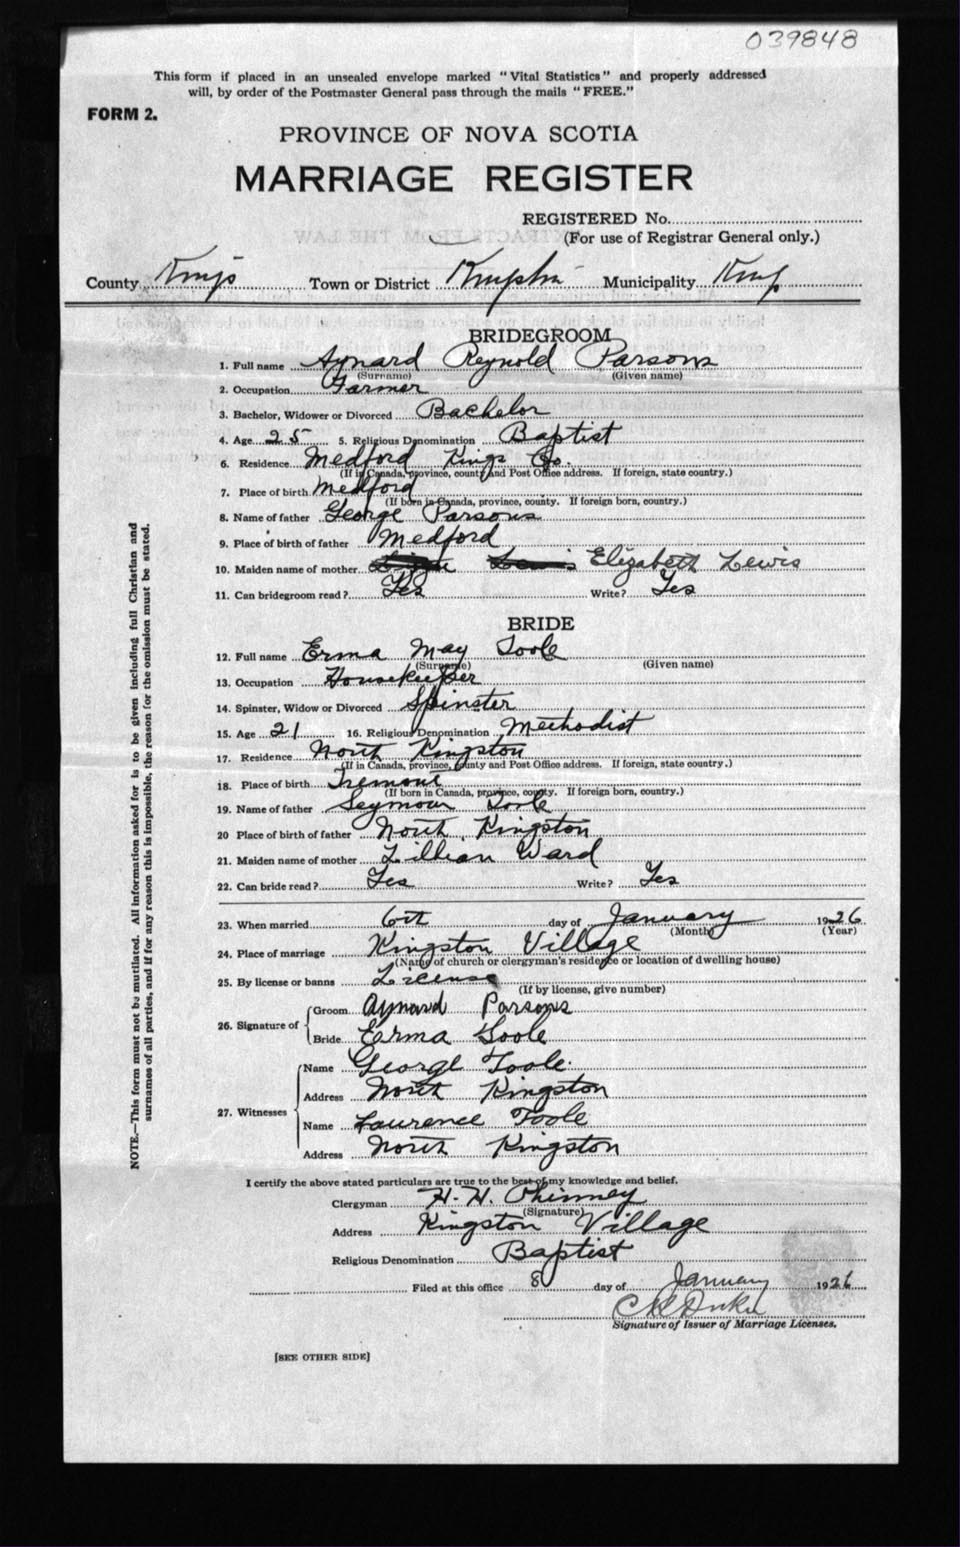 039848
This form if placed in an unsealed envelope marked "Vital Statistics" and properly addressed
will, by order of the Postmaster General pass through the mails "FREE."
FORM 2.
PROVINCE OF NOVA SCOTIA
MARRIAGE REGISTER
REGISTERED No.
(For use of Registrar General only.)
County Kings Town or District Kingston Municipality Kings
BRIDEGROOM
1. Full name Aynard Reynold Parsons
(Surname) (Given name)
2. Occupation Farmer
3. Bachelor, Widower or Divorced Bachelor
4. Age 25 5. Religious Denomination Baptist
6. Residence Medford Kings Co.
(If in Canada, province, county and Post Office address. If foreign, state country.)
7. Place of birth Medford
(If born in Canada, province, county. If foreign born, country.)
8. Name of father George Parsons
9. Place of birth of father Medford
10. Maiden name of mother Elizabeth Lewis
11. Can bridegroom read? Yes Write? Yes
BRIDE
12. Full name Erma May Toole
(Surname) (Given name)
13. Occupation Housekeeper
14. Spinster, Widow or Divorced Spinster
15. Age 21 16. Religious Denomination Methodist
17. Residence North Kingston
(If in Canada, province, county and Post Office address. If foreign, state country.)
18. Place of birth Tremont
(If born in Canada, province, county. If foreign born, country.)
19. Name of father Seymour Toole
20 Place of birth of father North Kingston
21. Maiden name of mother Lillian Ward
22. Can bride read? Yes Write? Yes
23. When married 6th day of January 1926
(Month) (Year)
24. Place of marriage Kingston Village
(Name of church or clergyman's residence or location of dwelling house)
25. By license or banns License
(If by license, give number)
26. Signature of
Groom Aynard Parsons
Bride Erma Toole
27. Witnesses
Name George Toole
Address North Kingston
Name Laurence Toole
Address North Kingston
I certify the above stated particulars are true to the best of my knowledge and belief.
Clergyman H. H. Phinney
(Signature)
Address Kingston Village
Religious Denomination Baptist
Filed at this office 8 day of January 1926
Signature of Issuer of Marriage Licenses.
[SEE OTHER SIDE]
NOTE.—This form must not be mutilated. All information asked for is to be given including full Christian and
surnames of all parties, and if for any reason this is impossible, the reason for the omission must be stated.